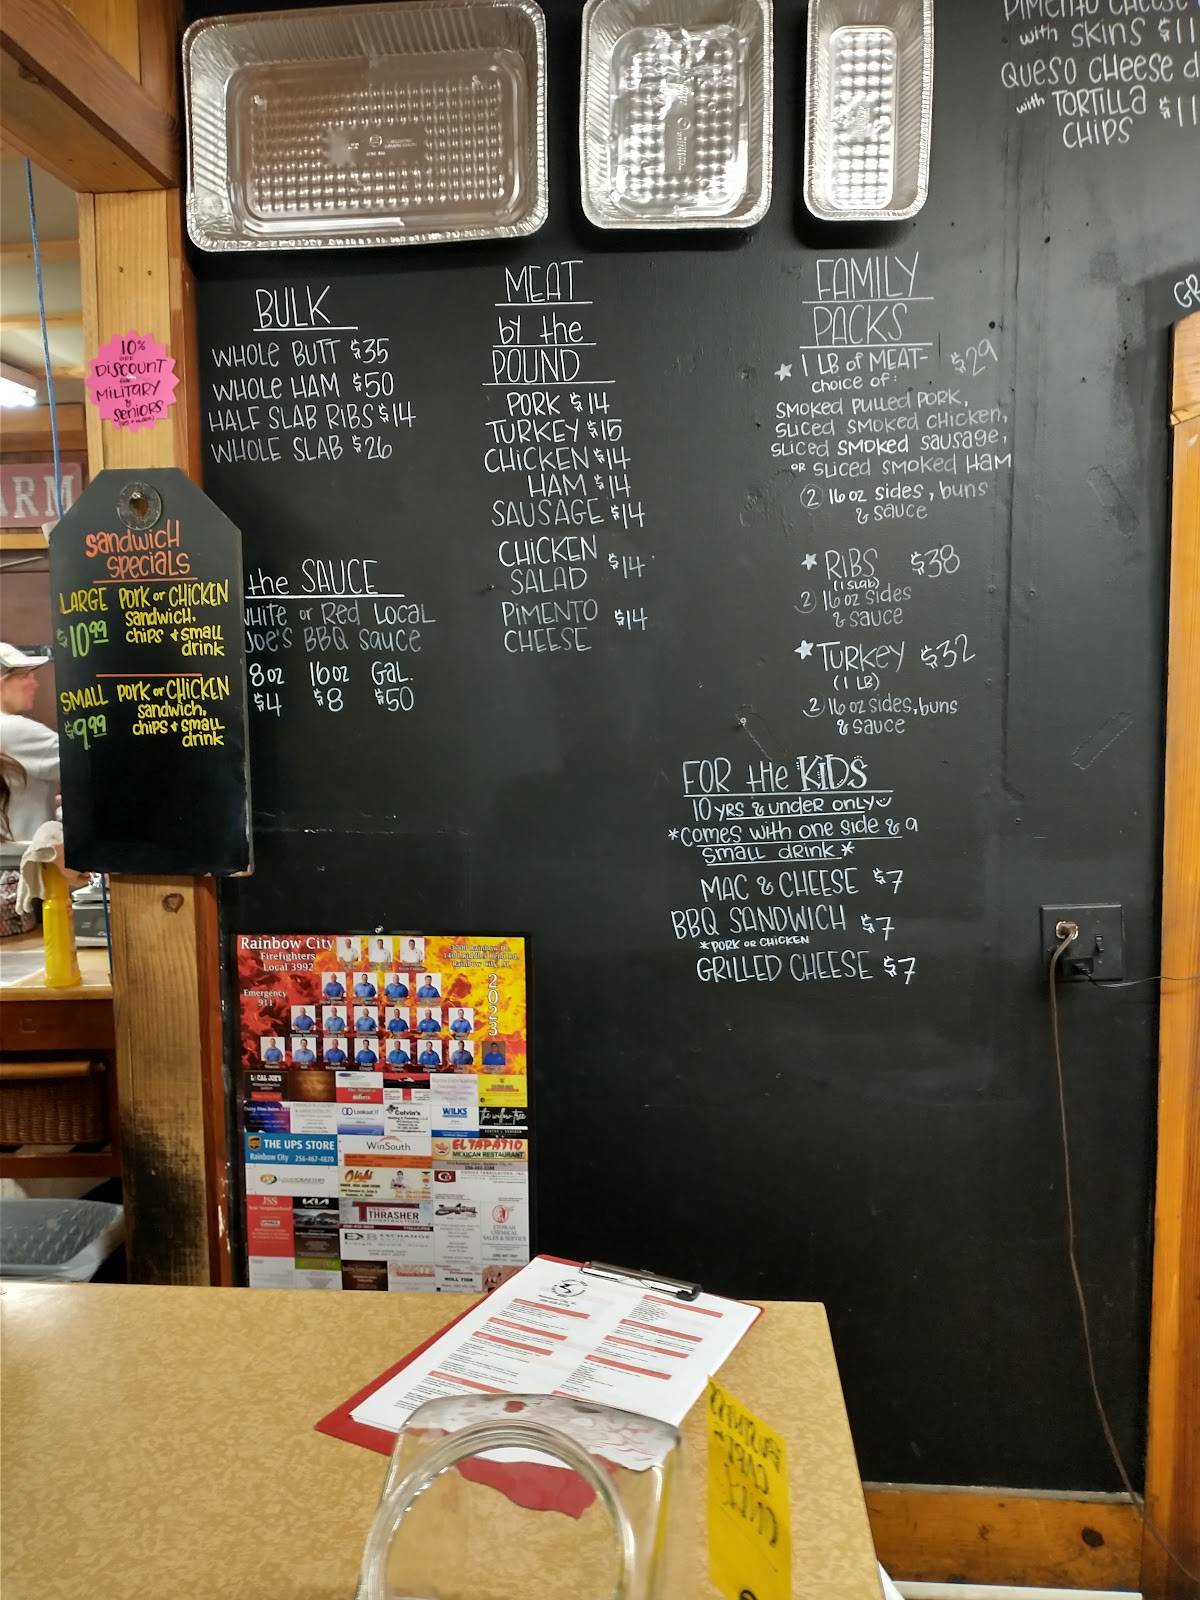 PIMENTO CHEESE
with SKINS $11
QUESO CHEESE
with TORTILLA $11
CHIPS
BULK
WHOLE BUTT $35
WHOLE HAM $50
HALF SLAB RIBS $14
WHOLE SLAB $26
the SAUCE
White or Red Local
Joe's BBQ Sauce
8oz 16oz GAL.
$4 $8 $50
MEAT
by the
POUND
PORK $14
TURKEY $15
CHICKEN $14
HAM $14
SAUSAGE $14
CHICKEN
SALAD $14
PIMENTO
CHEESE $14
FAMILY
PACKS
1 LB of MEAT- $29
choice of:
SMOKED PULLED PORK,
SLICED SMOKED CHICKEN,
SLICED SMOKED SAUSAGE,
OR SLICED SMOKED HAM
2 16 oz sides, buns
& sauce
RIBS $38
(1 slab)
2 16 oz sides
& sauce
TURKEY $32
(1 LB)
2 16 oz sides, buns
& sauce
FOR the KIDS
10 yrs & under only
*comes with one side & a
small drink*
MAC & CHEESE $7
BBQ SANDWICH $7
*PORK OR CHICKEN
GRILLED CHEESE $7
10%
OFF
DISCOUNT
MILITARY
&
SENIORS
ARM
Sandwich
Specials
LARGE PORK or CHICKEN
$10.99 sandwich,
chips + small
drink
SMALL PORK or CHICKEN
$9.99 sandwich,
chips + small
drink
Rainbow City
Firefighters
Local 3992
Emergency
911
2023
LOCAL JOE'S
Lookout IT
Colvin's
WILKS
the willow tree
THE UPS STORE
Rainbow City 256-467-4870
WinSouth
EL TAPATIO
MEXICAN RESTAURANT
JSS
KIA
THRASHER
EXCHANGE
ETOWAH
CHEMICAL
SALES & SERVICE
BUSINESS
CARD
ONLY